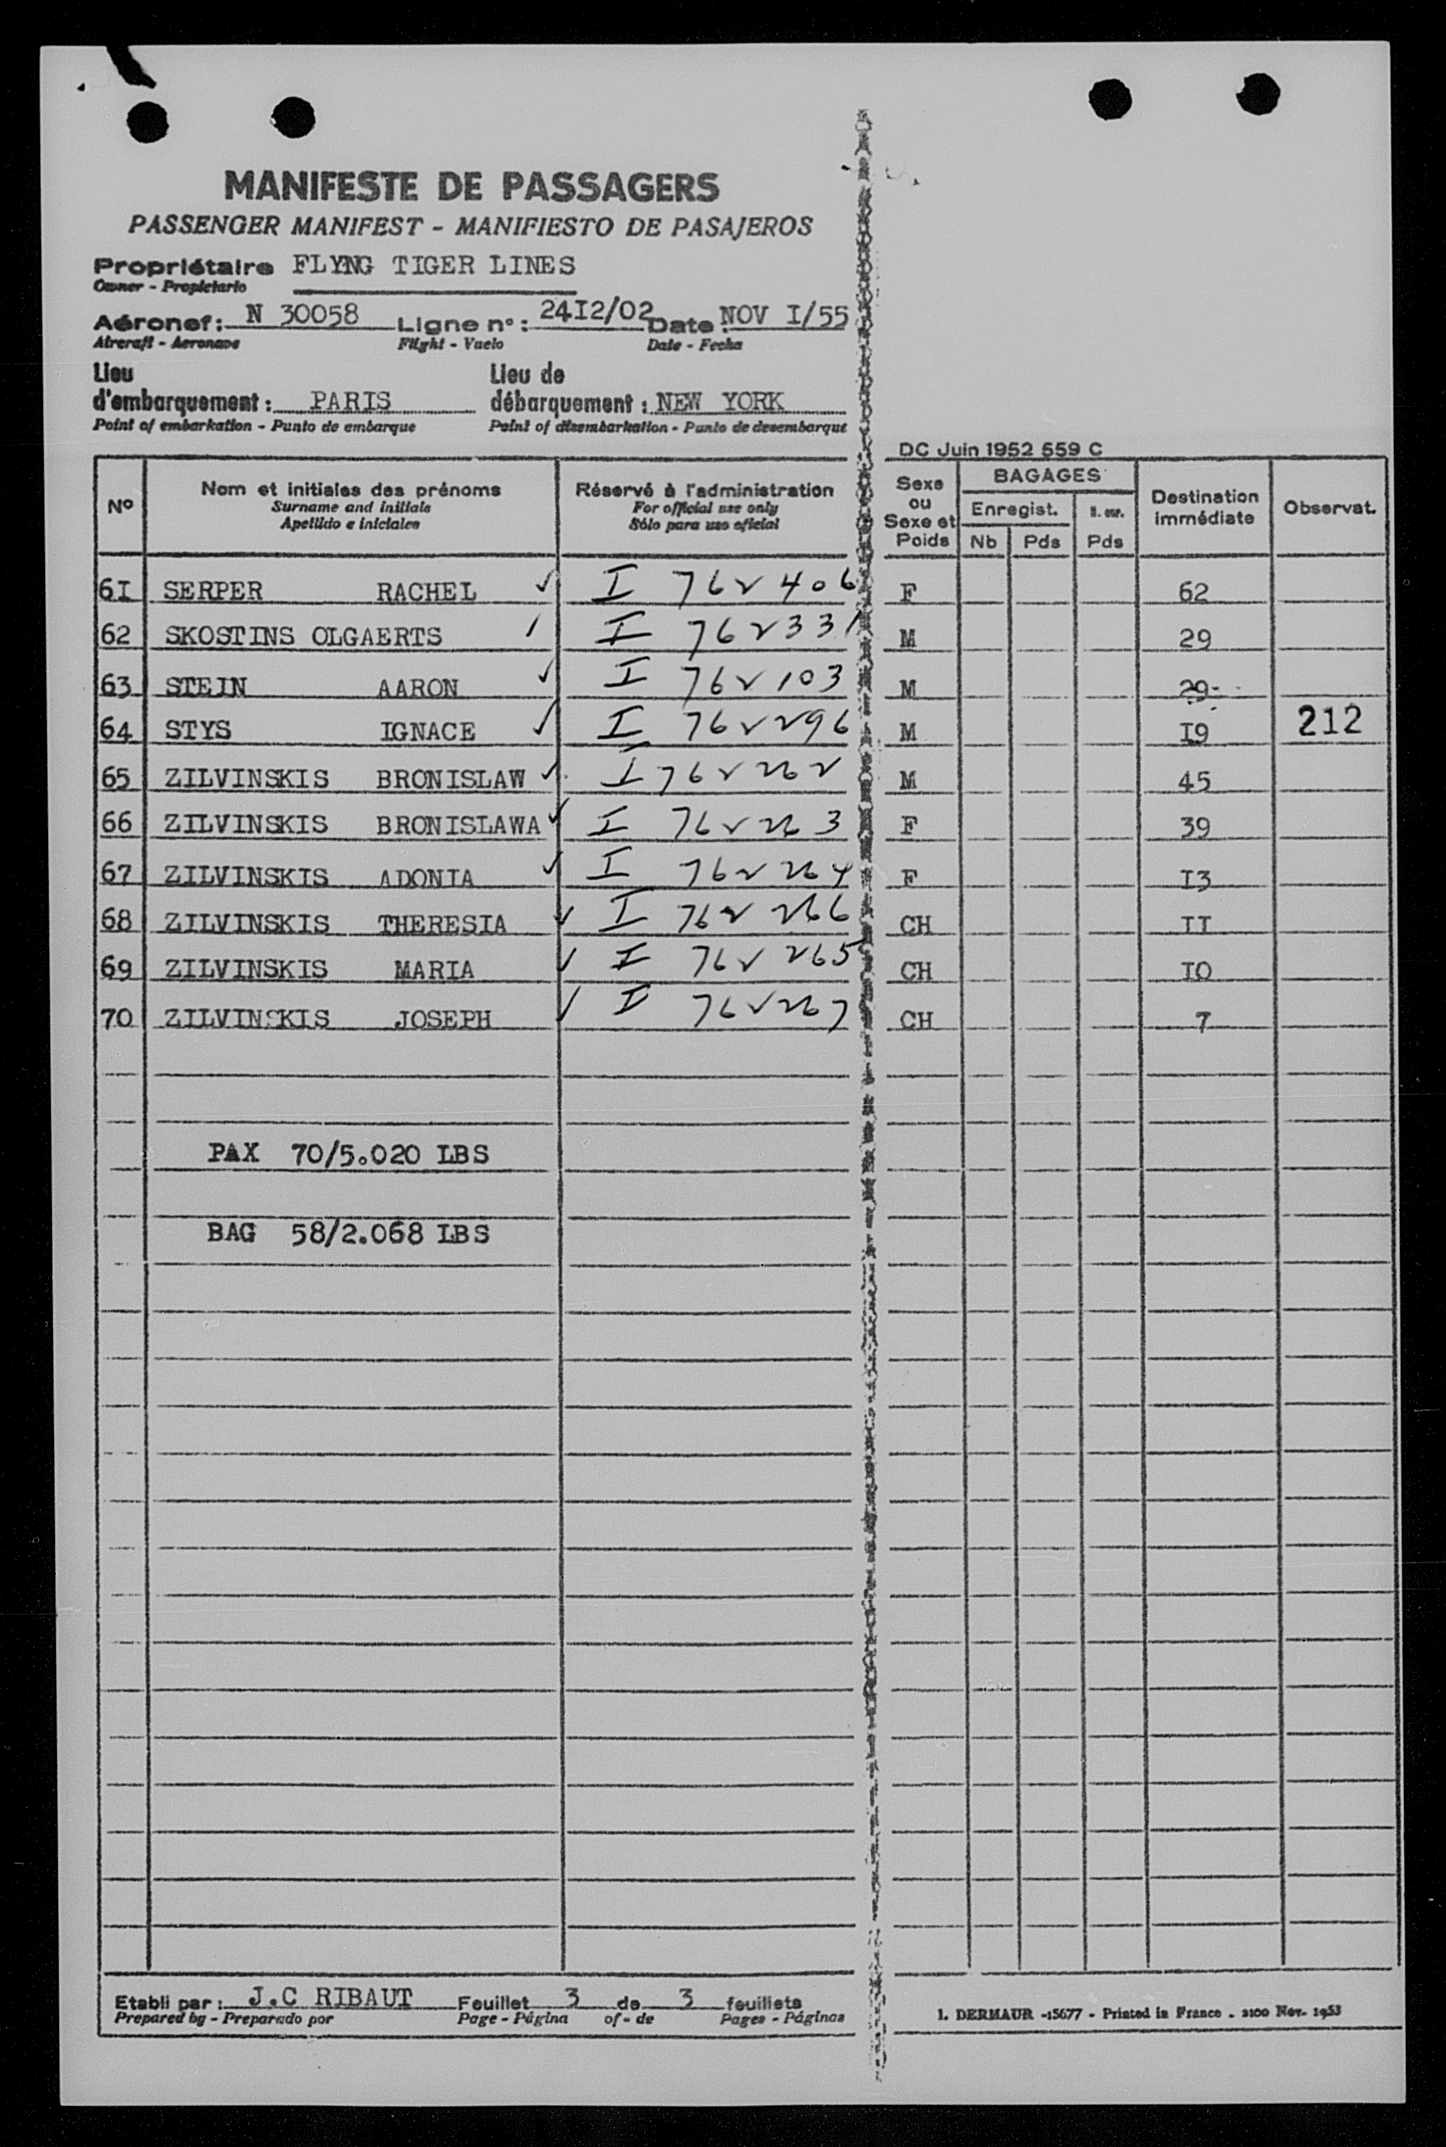 MANIFESTE DE PASSAGERS
PASSENGER MANIFEST - MANIFIESTO DE PASAJEROS
Propriétaire FLYNG TIGER LINES
Owner - Propietario
Aéronef: N 30058 Ligne n°: 24I2/02 Date: NOV I/55
Aircraft - Aeronave Flight - Vuelo Date - Fecha
Lieu d'embarquement: PARIS Lieu de débarquement: NEW YORK
Point of embarkation - Punto de embarque Point of disembarkation - Punto de desembarque
DC Juin 1952 559 C
N° Nom et initiales des prénoms Réservé à l'administration Sexe ou Sexe et Poids BAGAGES Destination immédiate Observat.
Surname and initials For official use only Enregist.
Apellido e iniciales Sólo para uso oficial Nb Pds Pds
6I SERPER RACHEL ✓ I 762406 F 62
62 SKOSTINS OLGAERTS / I 762331 M 29
63 STEIN AARON ✓ I 762103 M 29
64 STYS IGNACE ✓ I 762296 M I9 212
65 ZILVINSKIS BRONISLAW ✓ I 762262 M 45
66 ZILVINSKIS BRONISLAWA ✓ I 762263 F 39
67 ZILVINSKIS ADONIA ✓ I 762264 F I3
68 ZILVINSKIS THERESIA ✓ I 762266 CH II
69 ZILVINSKIS MARIA ✓ I 762265 CH IO
70 ZILVINSKIS JOSEPH ✓ I 762267 CH 7
PAX 70/5.020 LBS
BAG 58/2.068 LBS
Etabli par: J.C RIBAUT Feuillet 3 de 3 feuillets
Prepared by - Preparado por Page - Página of - de Pages - Páginas
I. DERMAUR -15677 - Printed in France - 2100 Nov. 1953